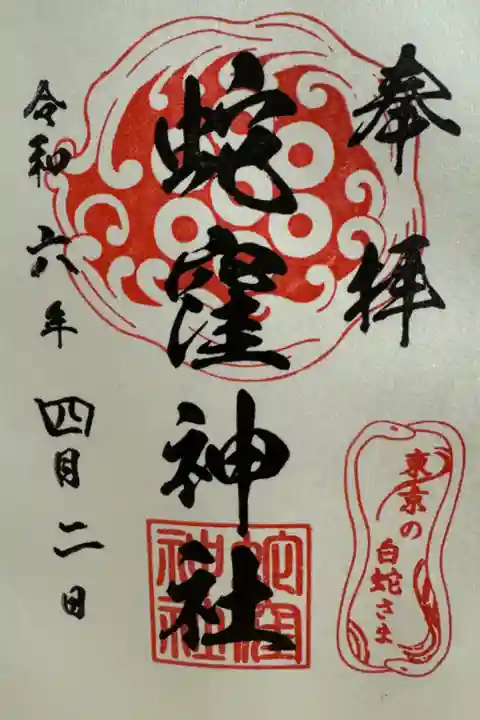 奉拝
蛇窪神社
令和六年四月二日
蛇窪
神社
東京の
白蛇さま